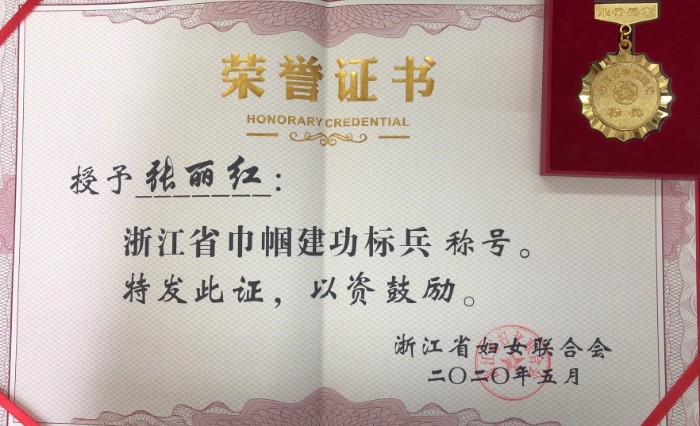 荣誉证书
HONORARY CREDENTIAL
授予张丽红：
浙江省巾帼建功标兵称号。
特发此证，以资鼓励。
浙江省妇女联合会
二〇二〇年五月